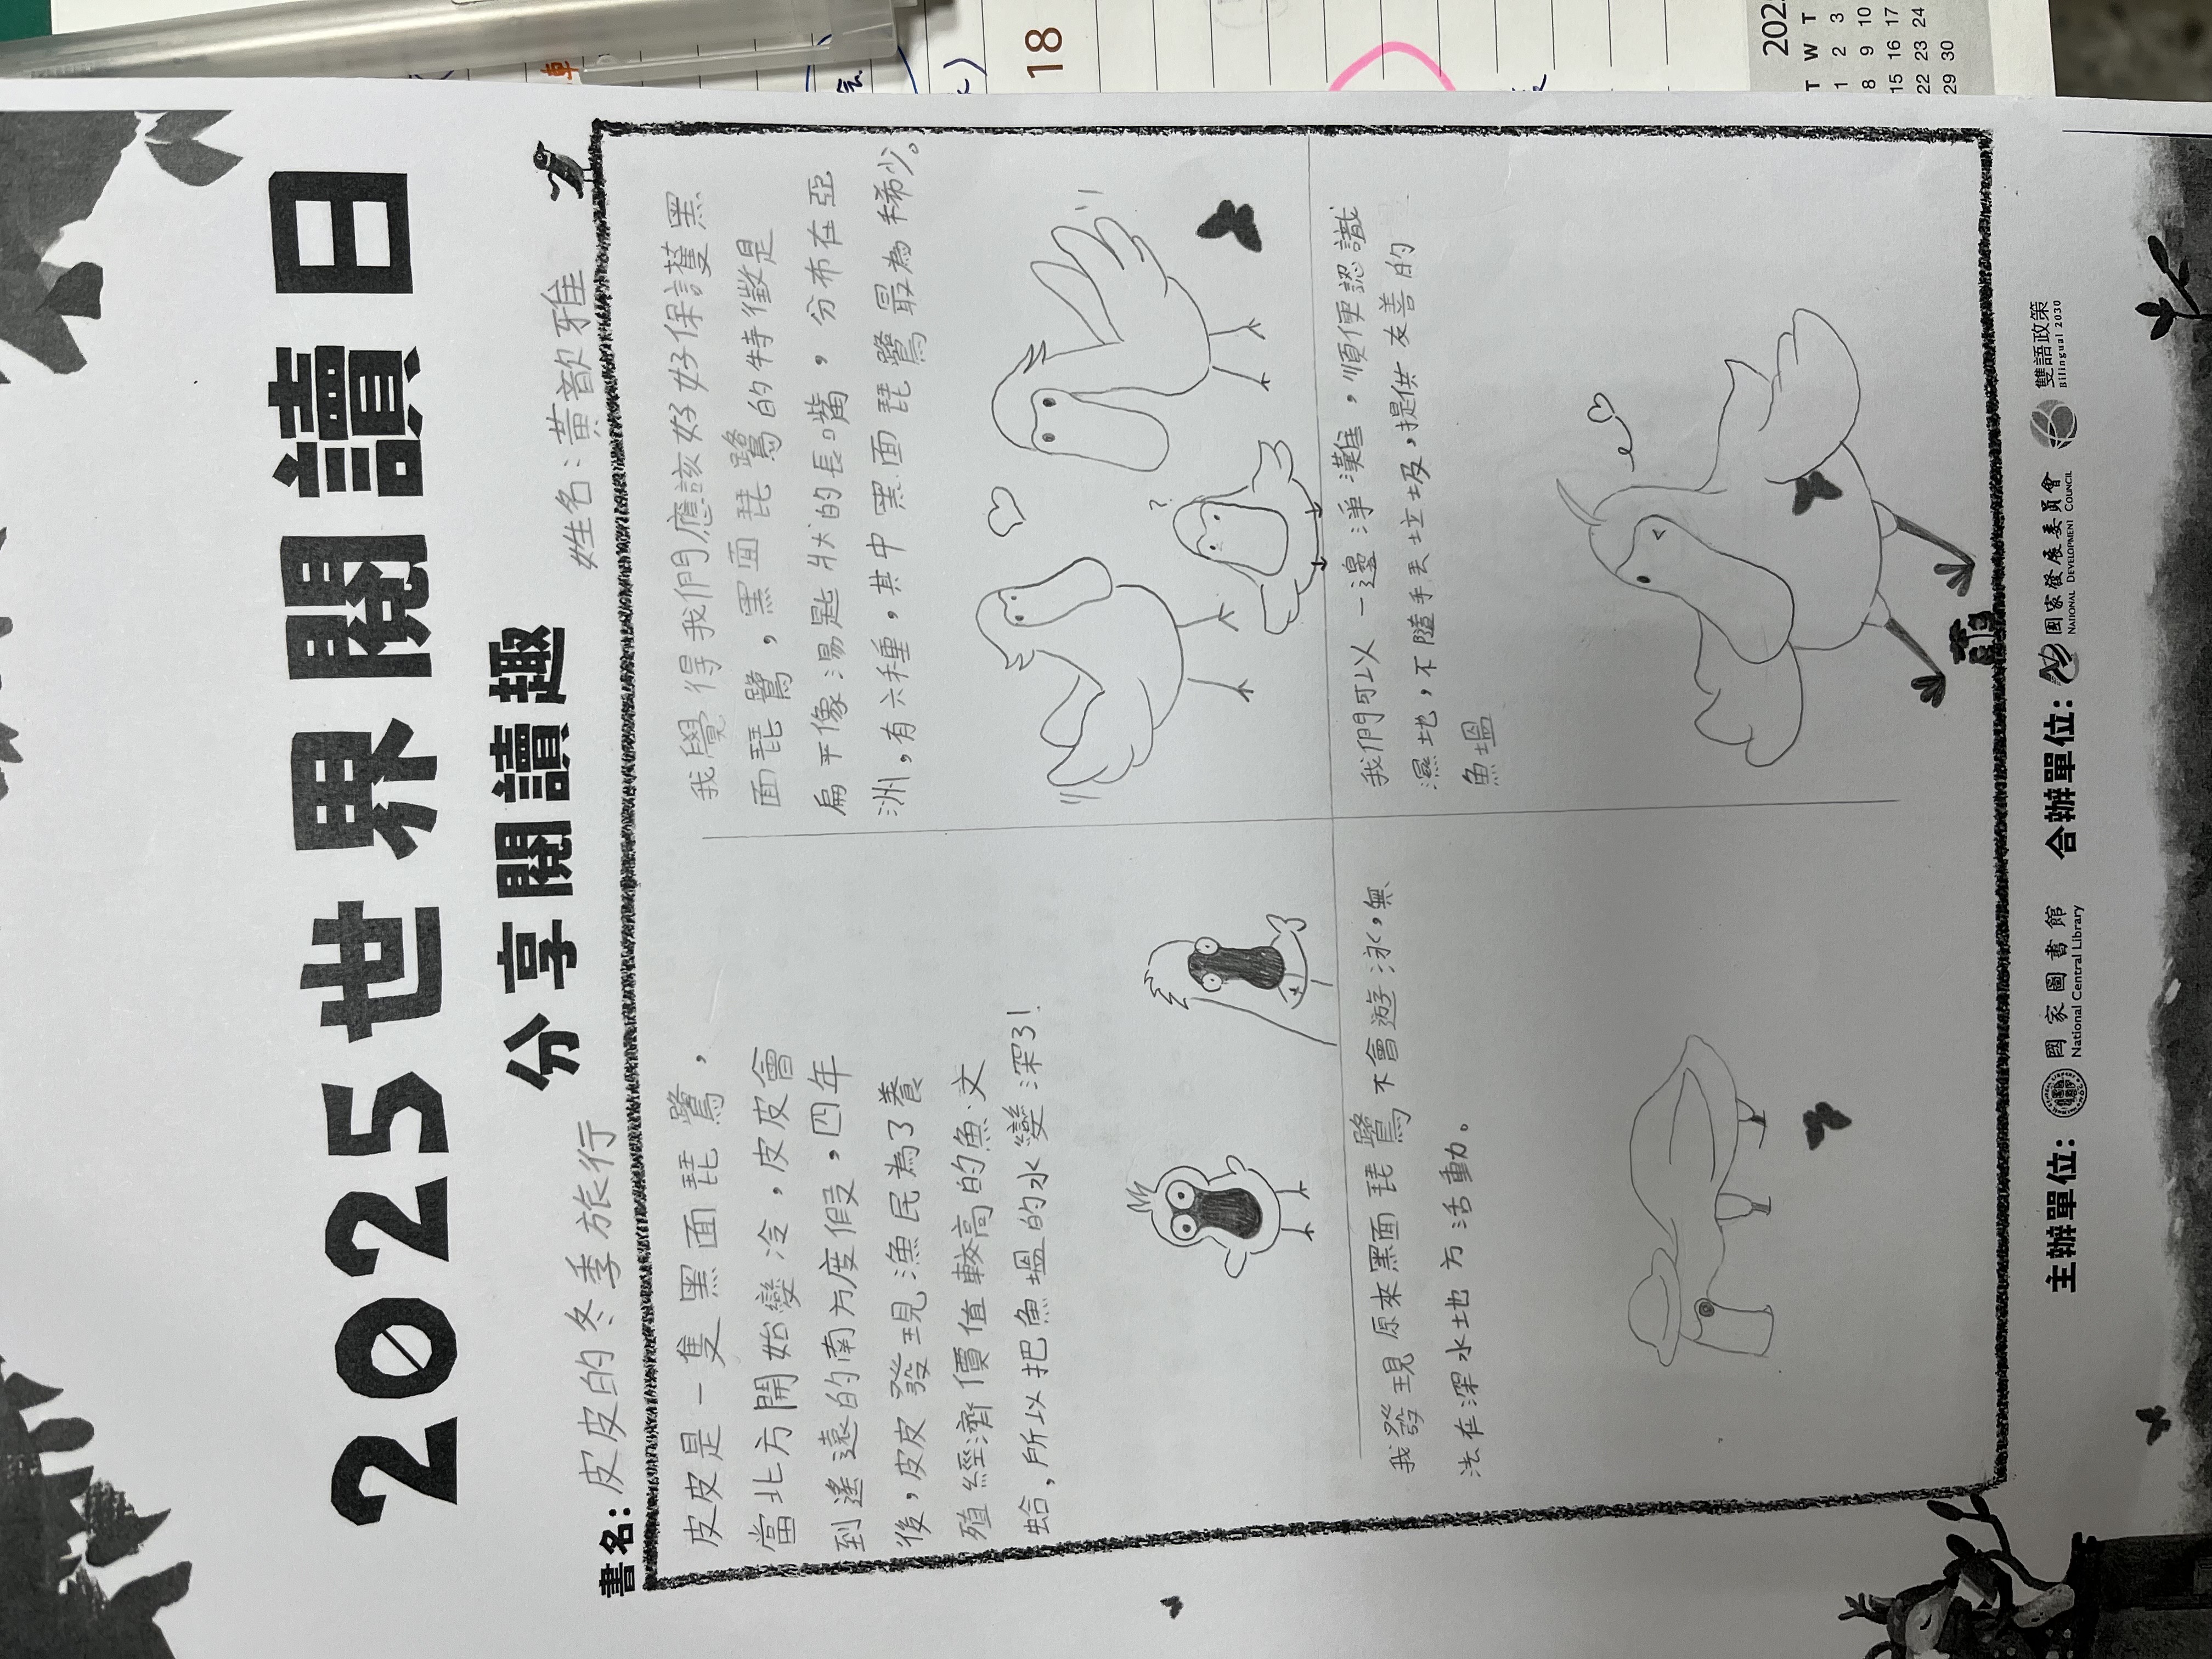 2025世界閱讀日
分享閱讀趣
書名：皮皮的冬季旅行
姓名：黃歆雅
皮皮是一隻黑面琵鷺，
當北方開始變冷，皮皮會
到遙遠的南方度假，四年
後，皮皮發現漁民為了養
殖經濟價值較高的魚文
蛤，所以把魚塭的水變深了！
我覺得我們應該好好保護黑
面琵鷺，黑面琵鷺的特徵是
扁平像湯匙狀的長嘴，分布在亞
洲，有六種，其中黑面琵鷺最為稀少。
我發現原來黑面琵鷺不會遊泳，無
法在深水地方活動。
我們可以一邊淨灘，順便認識
濕地，不隨手丟垃圾，提供友善的
魚塭
主辦單位：國家圖書館
National Central Library
合辦單位：國家發展委員會
NATIONAL DEVELOPMENT COUNCIL
雙語政策
Bilingual 2030
18
202
T W T
1 2 3
8 9 10
15 16 17
22 23 24
29 30